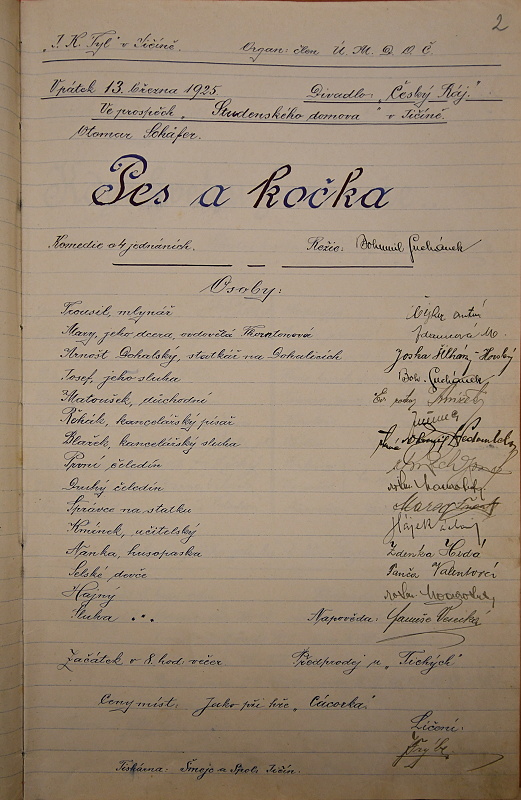 2
"J. K. Tyl" v Jičíně. Organ: člen Ú. M. D. O. Č
V pátek 13. března 1925 Divadlo „Český Ráj."
Ve prospěch „Studenského domova" v Jičíně.
Otomar Schäfer.
Pes a kočka
Komedie o 4 jednáních. Režie: Bohumil Suchánek
Osoby:
Trousil, mlynář
Mary, jeho dcera, ovdovělá Thorntonová
Arnošt Dohalský, statkář na Dohalicích
Josef, jeho sluha Boh. Suchánek
Matoušek, důchodní
Řehák, kancelářský písař
Blažek, kancelářský sluha
První čeledín
Druhý čeledín
Správce na statku
Kmínek, učitelský
Nanka, husopaska Zdenka
Selské děvče Valentová
Hajný
Sluha Napověda:
Začátek v 8. hod. večer Předprodej u „Tichých"
Ceny míst: Jako při hře „Cácorka"
Líčení:
Tiskárna: Smejc a Spol. Jičín.